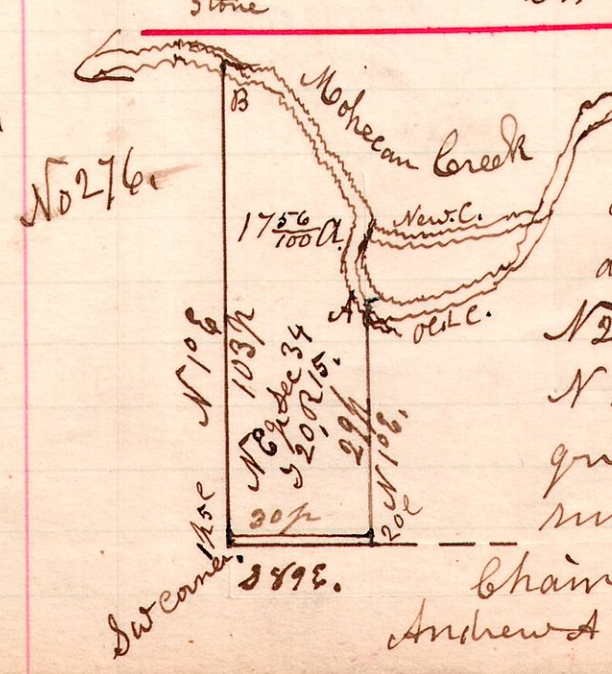 Stone
B
Mohecan Creek
No 276.
17 56/100 a.
New. C.
A
Old C.
N 1° E
103 p
N E qr Sec 34
T 20, R 15.
29 p
N 1° E.
20 l
30 p
S 89 E.
SW corner.
N 2
N
qr
Chain
Andrew A